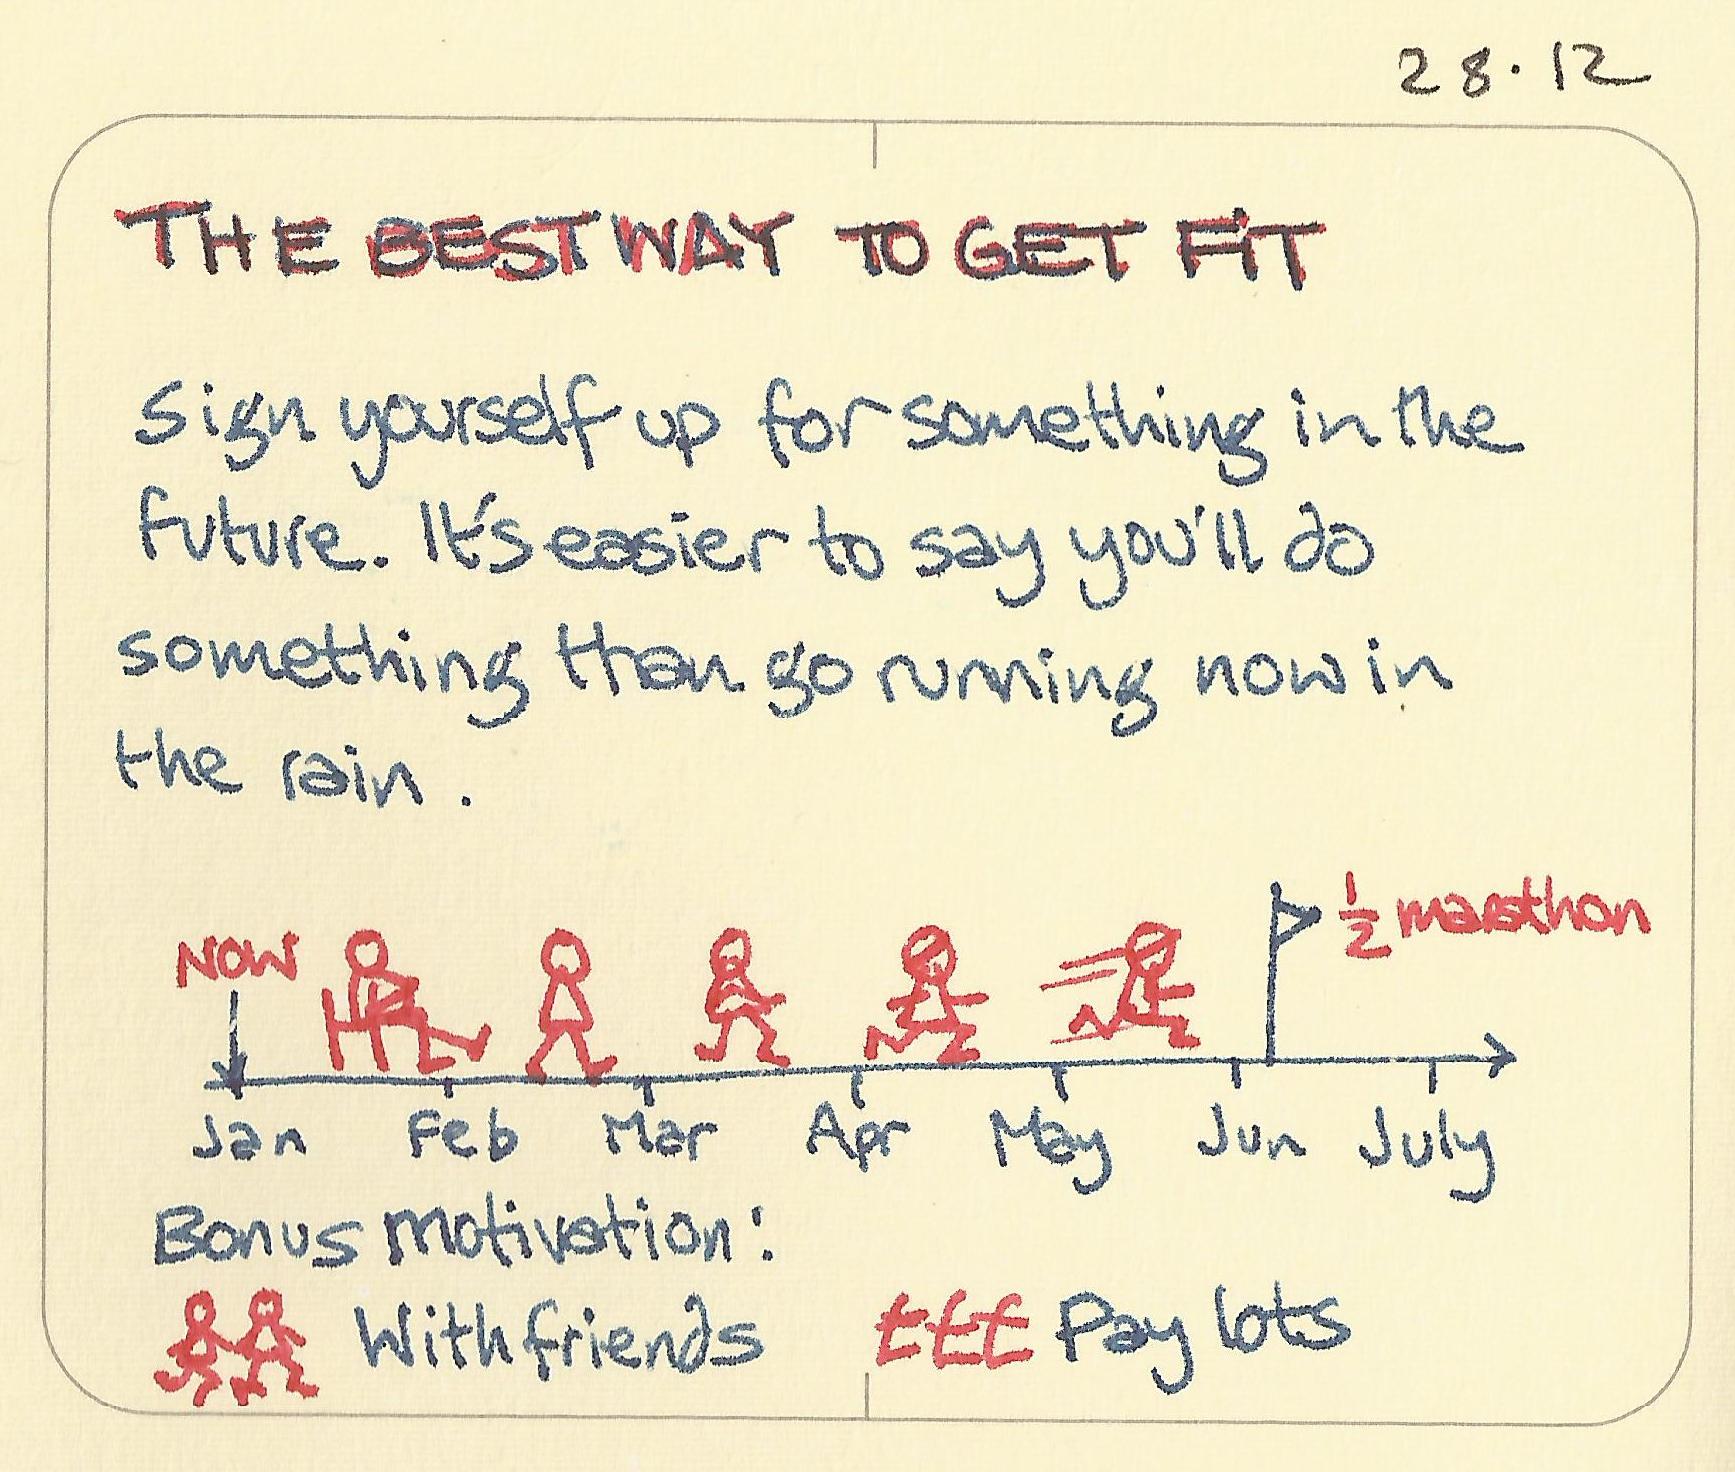 28.12
THE BEST WAY TO GET FIT
Sign yourself up for something in the
future. It's easier to say you'll do
something than go running now in
the rain.
NOW
1/2 marathon
Jan Feb Mar Apr May Jun July
Bonus motivation:
With friends £££ Pay lots